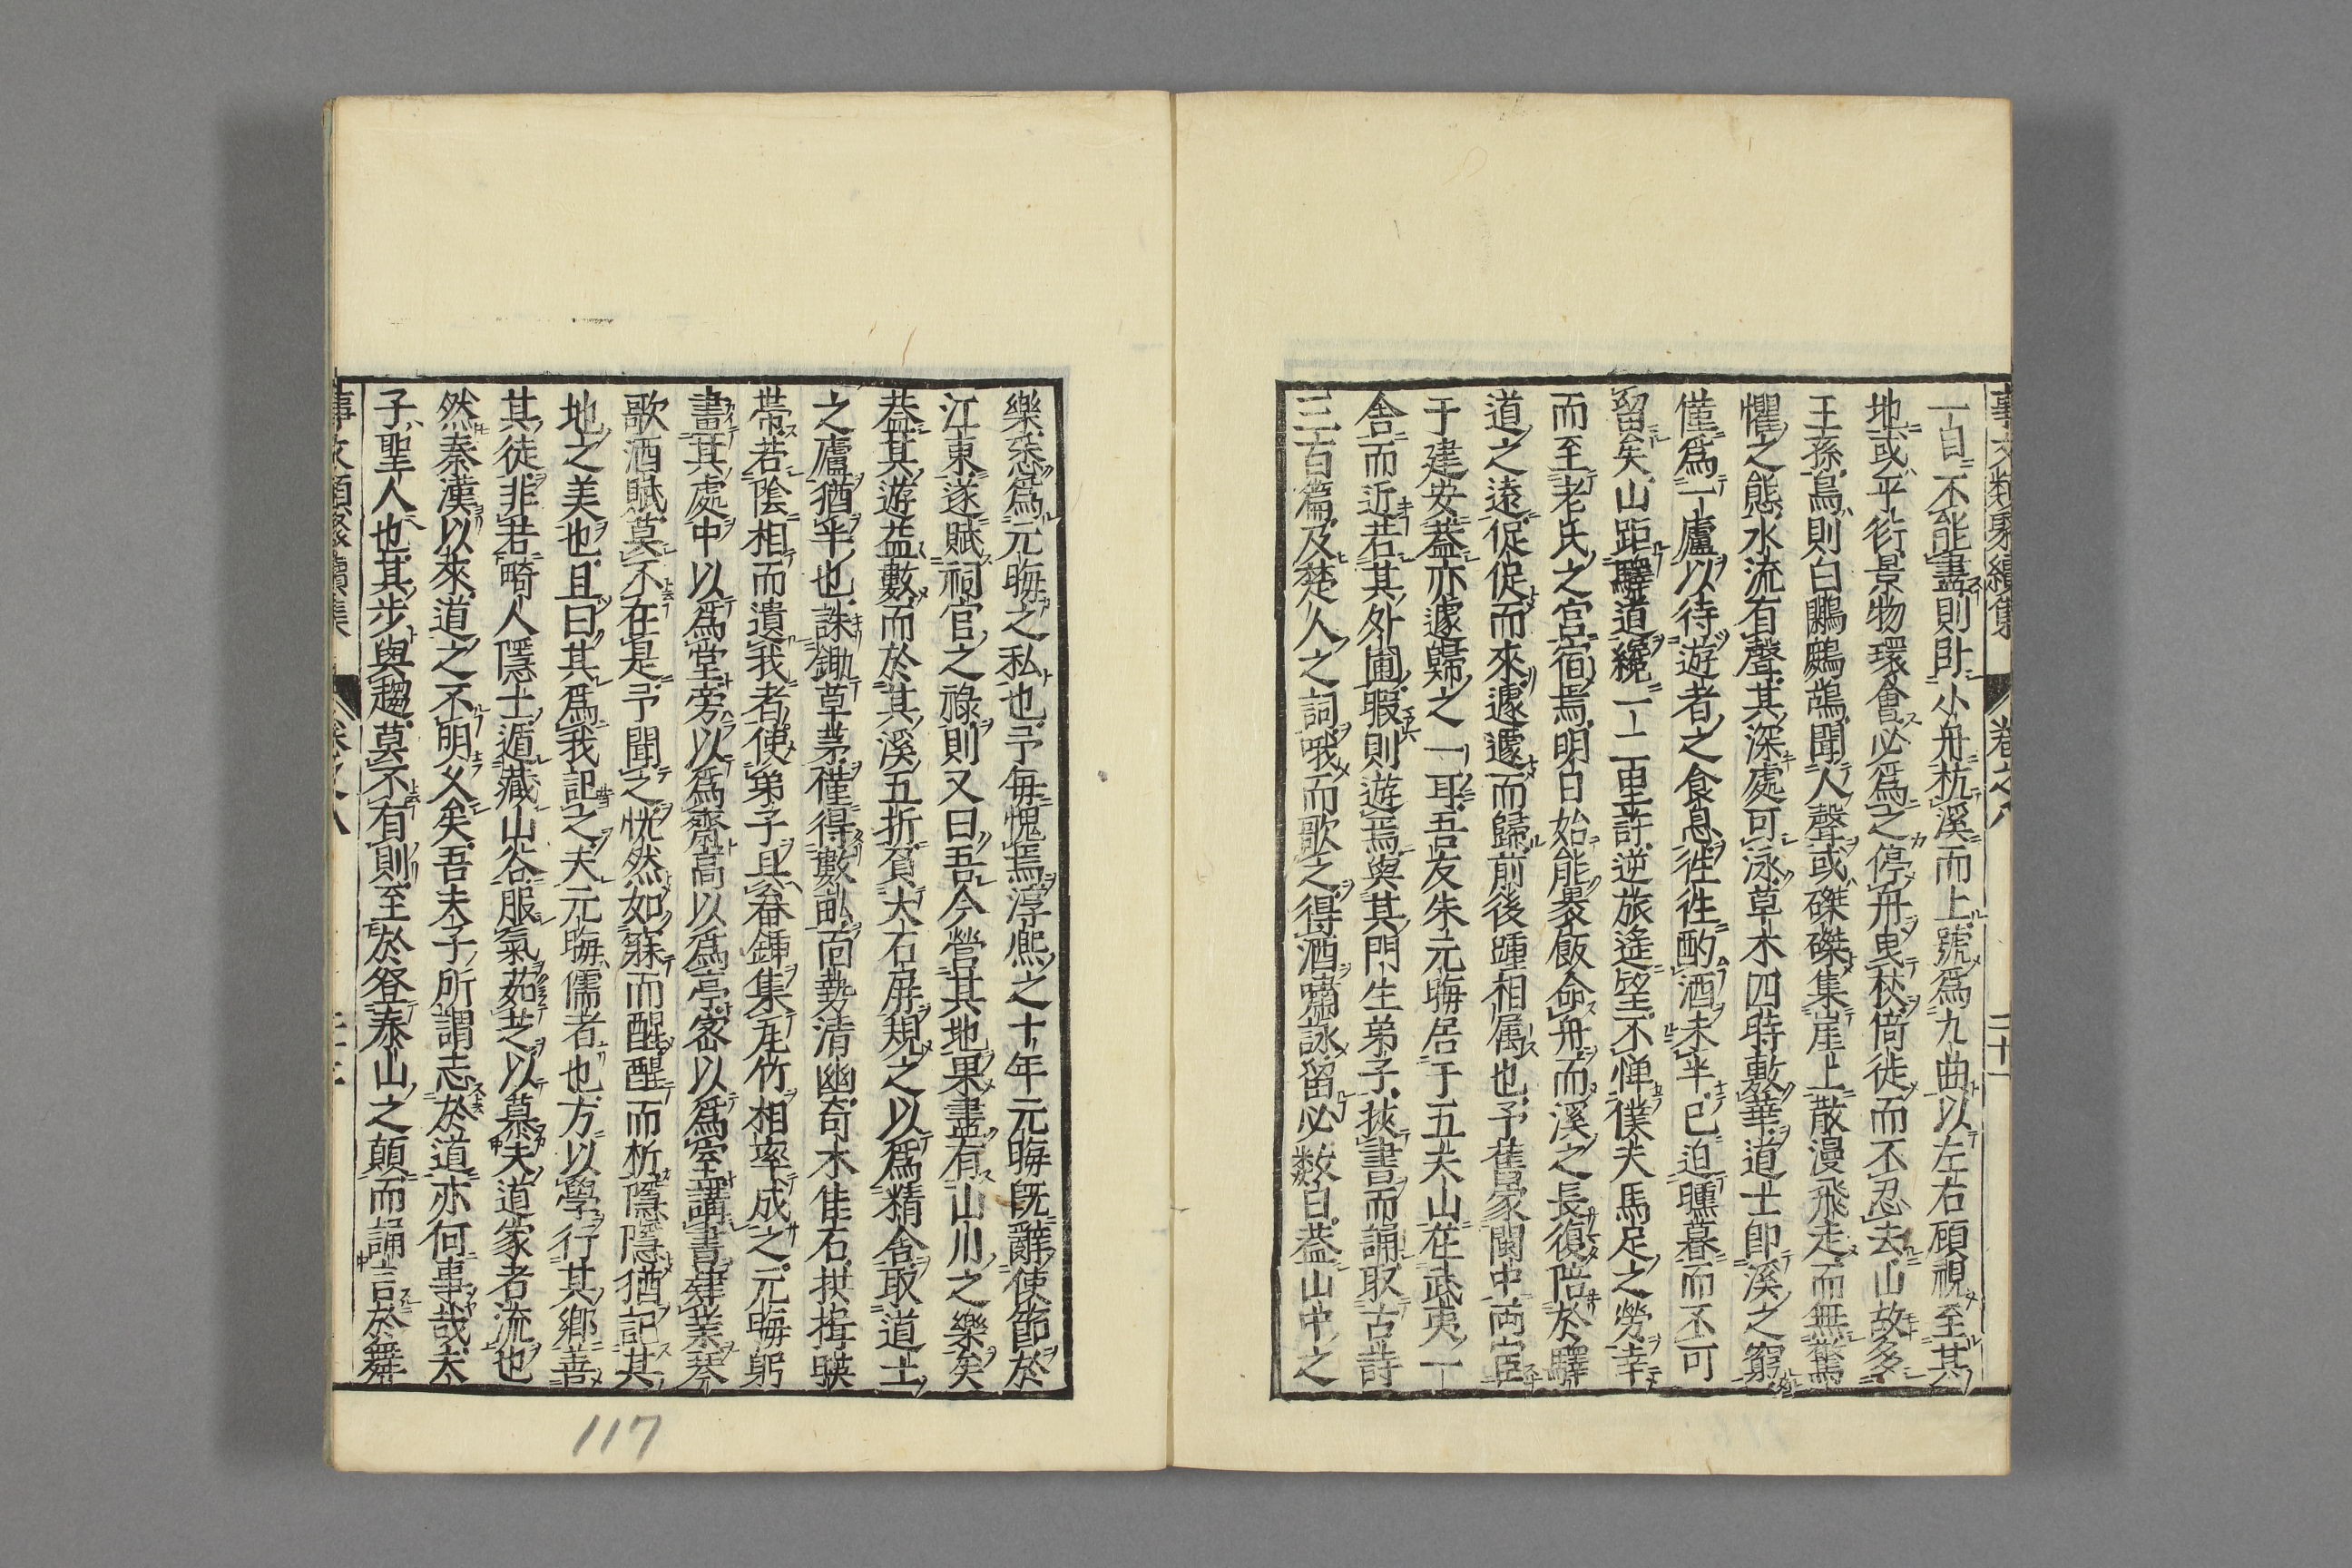 事文類聚續集 卷之八 二十一
一目不能盡則卧小舟杭溪而上號爲九曲以左右顧視至其
地或平衍景物環會必爲之停舟曳杖倚徙而不忍去山故多
王孫鳥則白鷴鷓鴣聞人聲或磔磔集崖上散漫飛走而無驚
懼之態水流有聲其深處可泳草木四時敷華道士即溪之窮
僅爲一廬以待遊者之食息徃徃酌酒未半已迫曛暮而不可
留矣山距驛道纔一二里許逆旅遙望不憚僕夫馬足之勞幸
而至老氏之宮宿焉明日始能裹飯命舟而溪之長復倍於驛
道之遠促促而來遽遽而歸前後踵相属也予舊家閩中両官
于建安蓋亦遽歸之一耳吾友朱元晦居于五夫山在武夷一
舎而近若其外圃暇則遊焉與其門生弟子挾書而誦取古詩
三百篇及楚人之詞哦而歌之得酒嘯詠留必数日蓋山中之
樂悉爲元晦之私也予每愧焉淳熈之十年元晦既辭使節於
江東遂賦祠官之祿則又曰吾今營其地果盡有山川之樂矣
蓋其遊益數而於其溪五折負大石屏規之以爲精舎取道士
之廬猶半也誅鋤草茅僅得數畝面勢清幽奇木佳石拱揖暎
帶若陰相而遺我者使弟子具畚鍤集瓦竹相率成之元晦躬
畫其處中以爲堂旁以爲齋高以爲亭宻以爲室講書肄業琴
歌酒賦莫不在是予聞之恍然如寐而醒醒而析隱隱猶記其
地之美也且曰其爲我記之夫元晦儒者也方以學行其鄕善
其徒非若畸人隱士遁藏山谷服氣茹芝以慕夫道家者流也
然秦漢以來道之不明久矣吾夫子所謂志於道亦何事哉夫
子聖人也其步與趨莫不有則至於登泰山之顛而誦言於舞